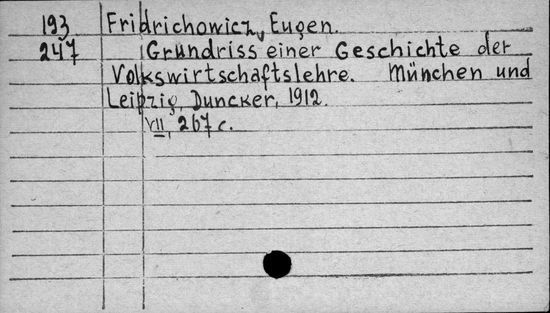 193 Fridrichowicz, Eugen.
247 Grundriss einer Geschichte der
Volkswirtschaftslehre. München und
Leipzig, Duncker, 1912.
VII, 267 c.